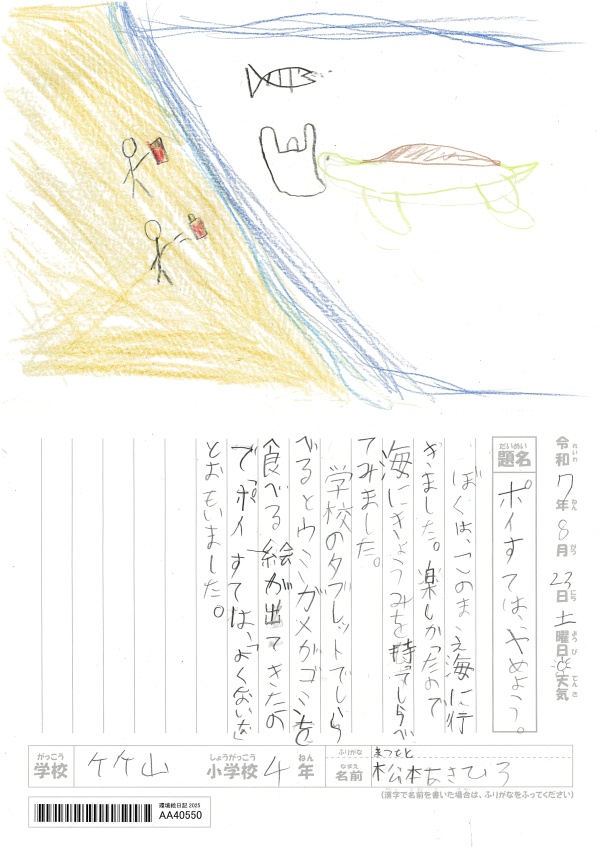 令和7年8月23日土曜日天気
れいわ ねん がつ にち ようび てんき
だいめい
題名 ポイすては、やめよう。
ぼくは、このまえ海に行
きました。楽しかったので
海にきょうみを持ってしらべ
てみました。
学校のタブレットでしら
べるとウミガメがゴミを
食べる絵が出てきたの
で「ポイすては、「よくないな」
とおもいました。
がっこう しょうがっこう ねん
学校 竹山 小学校 4年
ふりがな まつもと
なまえ
名前 松本あきひろ
(漢字で名前を書いた場合は、ふりがなをふってください)
環境絵日記 2025
AA40550